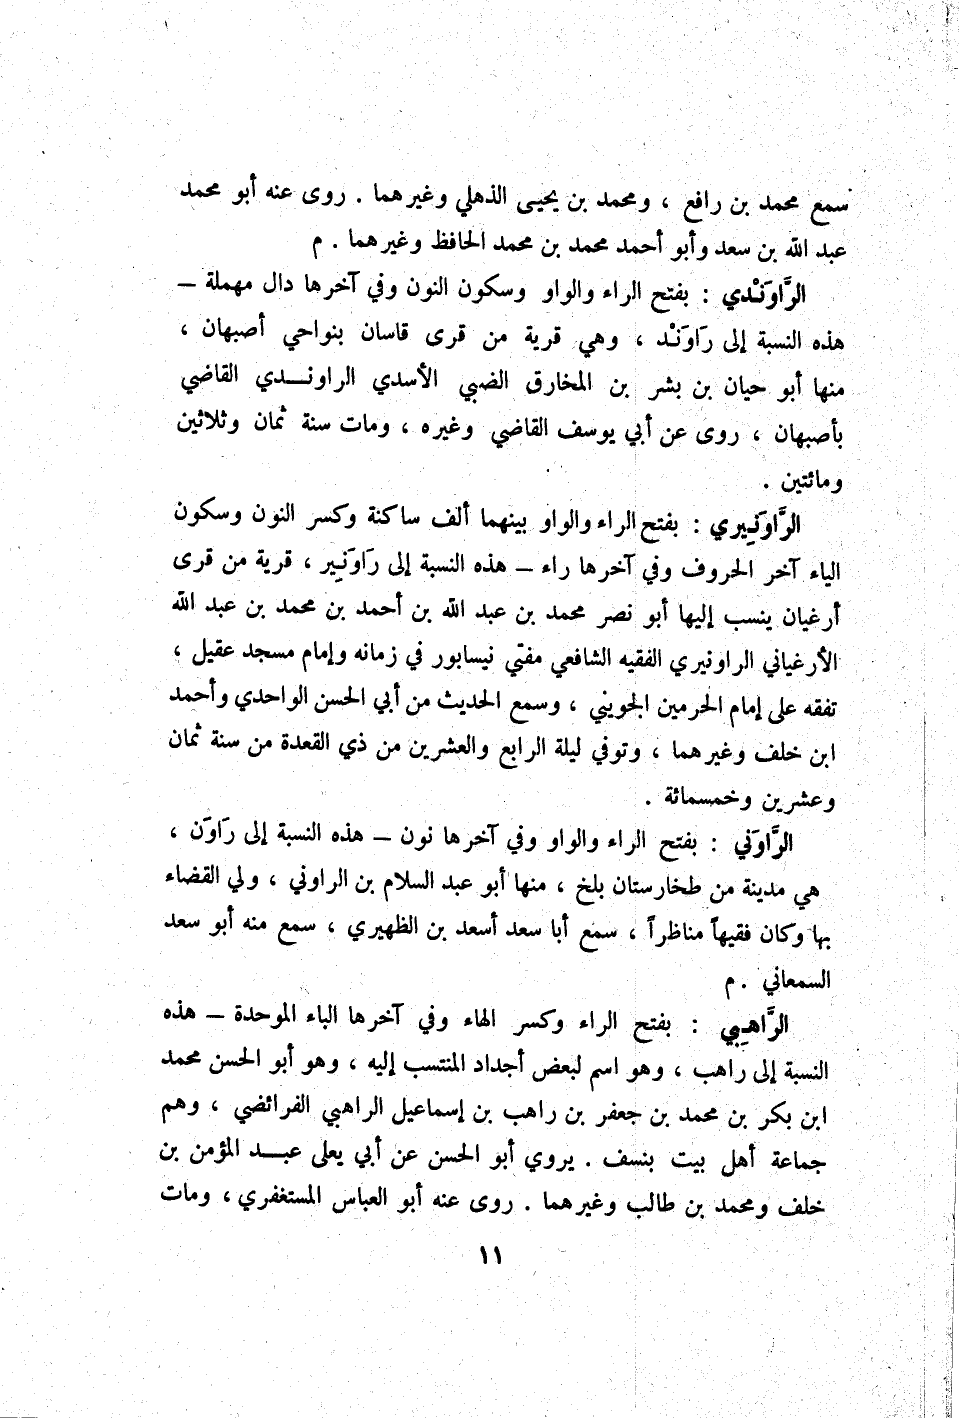 سمع محمد بن رافع ، ومحمد بن يحيى الذهلي وغيرهما . روى عنه أبو محمد
عبد الله بن سعد وأبو أحمد محمد بن محمد الحافظ وغيرهما . م
الرَّاوَنْدي : بفتح الراء والواو وسكون النون وفي آخرها دال مهملة –
هذه النسبة إلى رَاوَنْد ، وهي قرية من قرى قاسان بنواحي أصبهان ،
منها أبو حيان بن بشر بن المخارق الضبي الأسدي الراونـدي القاضي
بأصبهان ، روى عن أبي يوسف القاضي وغيره ، ومات سنة ثمان وثلاثين
ومائتين .
الرَّاوَنِيري : بفتح الراء والواو بينهما ألف ساكنة وكسر النون وسكون
الياء آخر الحروف وفي آخرها راء – هذه النسبة إلى رَاوَنِير ، قرية من قرى
أرغيان ينسب إليها أبو نصر محمد بن عبد الله بن أحمد بن محمد بن عبد الله
الأرغياني الراونيري الفقيه الشافعي مفتي نيسابور في زمانه وإمام مسجد عقيل ،
تفقه على إمام الحرمين الجويني ، وسمع الحديث من أبي الحسن الواحدي وأحمد
ابن خلف وغيرهما ، وتوفي ليلة الرابع والعشرين من ذي القعدة من سنة ثمان
وعشرين وخمسمائة .
الرَّاوَني : بفتح الراء والواو وفي آخرها نون – هذه النسبة إلى رَاوَن ،
هي مدينة من طخارستان بلخ ، منها أبو عبد السلام بن الراوني ، ولي القضاء
بها وكان فقيهاً مناظراً ، سمع أبا سعد أسعد بن الظهيري ، سمع منه أبو سعد
السمعاني . م
الرَّاهِبي : بفتح الراء وكسر الهاء وفي آخرها الباء الموحدة – هذه
النسبة إلى راهب ، وهو اسم لبعض أجداد المنتسب إليه ، وهو أبو الحسن محمد
ابن بكر بن محمد بن جعفر بن راهب بن إسماعيل الراهبي الفرائضي ، وهم
جماعة أهل بيت بنسف . يروي أبو الحسن عن أبي يعلى عبـد المؤمن بن
خلف ومحمد بن طالب وغيرهما . روى عنه أبو العباس المستغفري ، ومات
١١